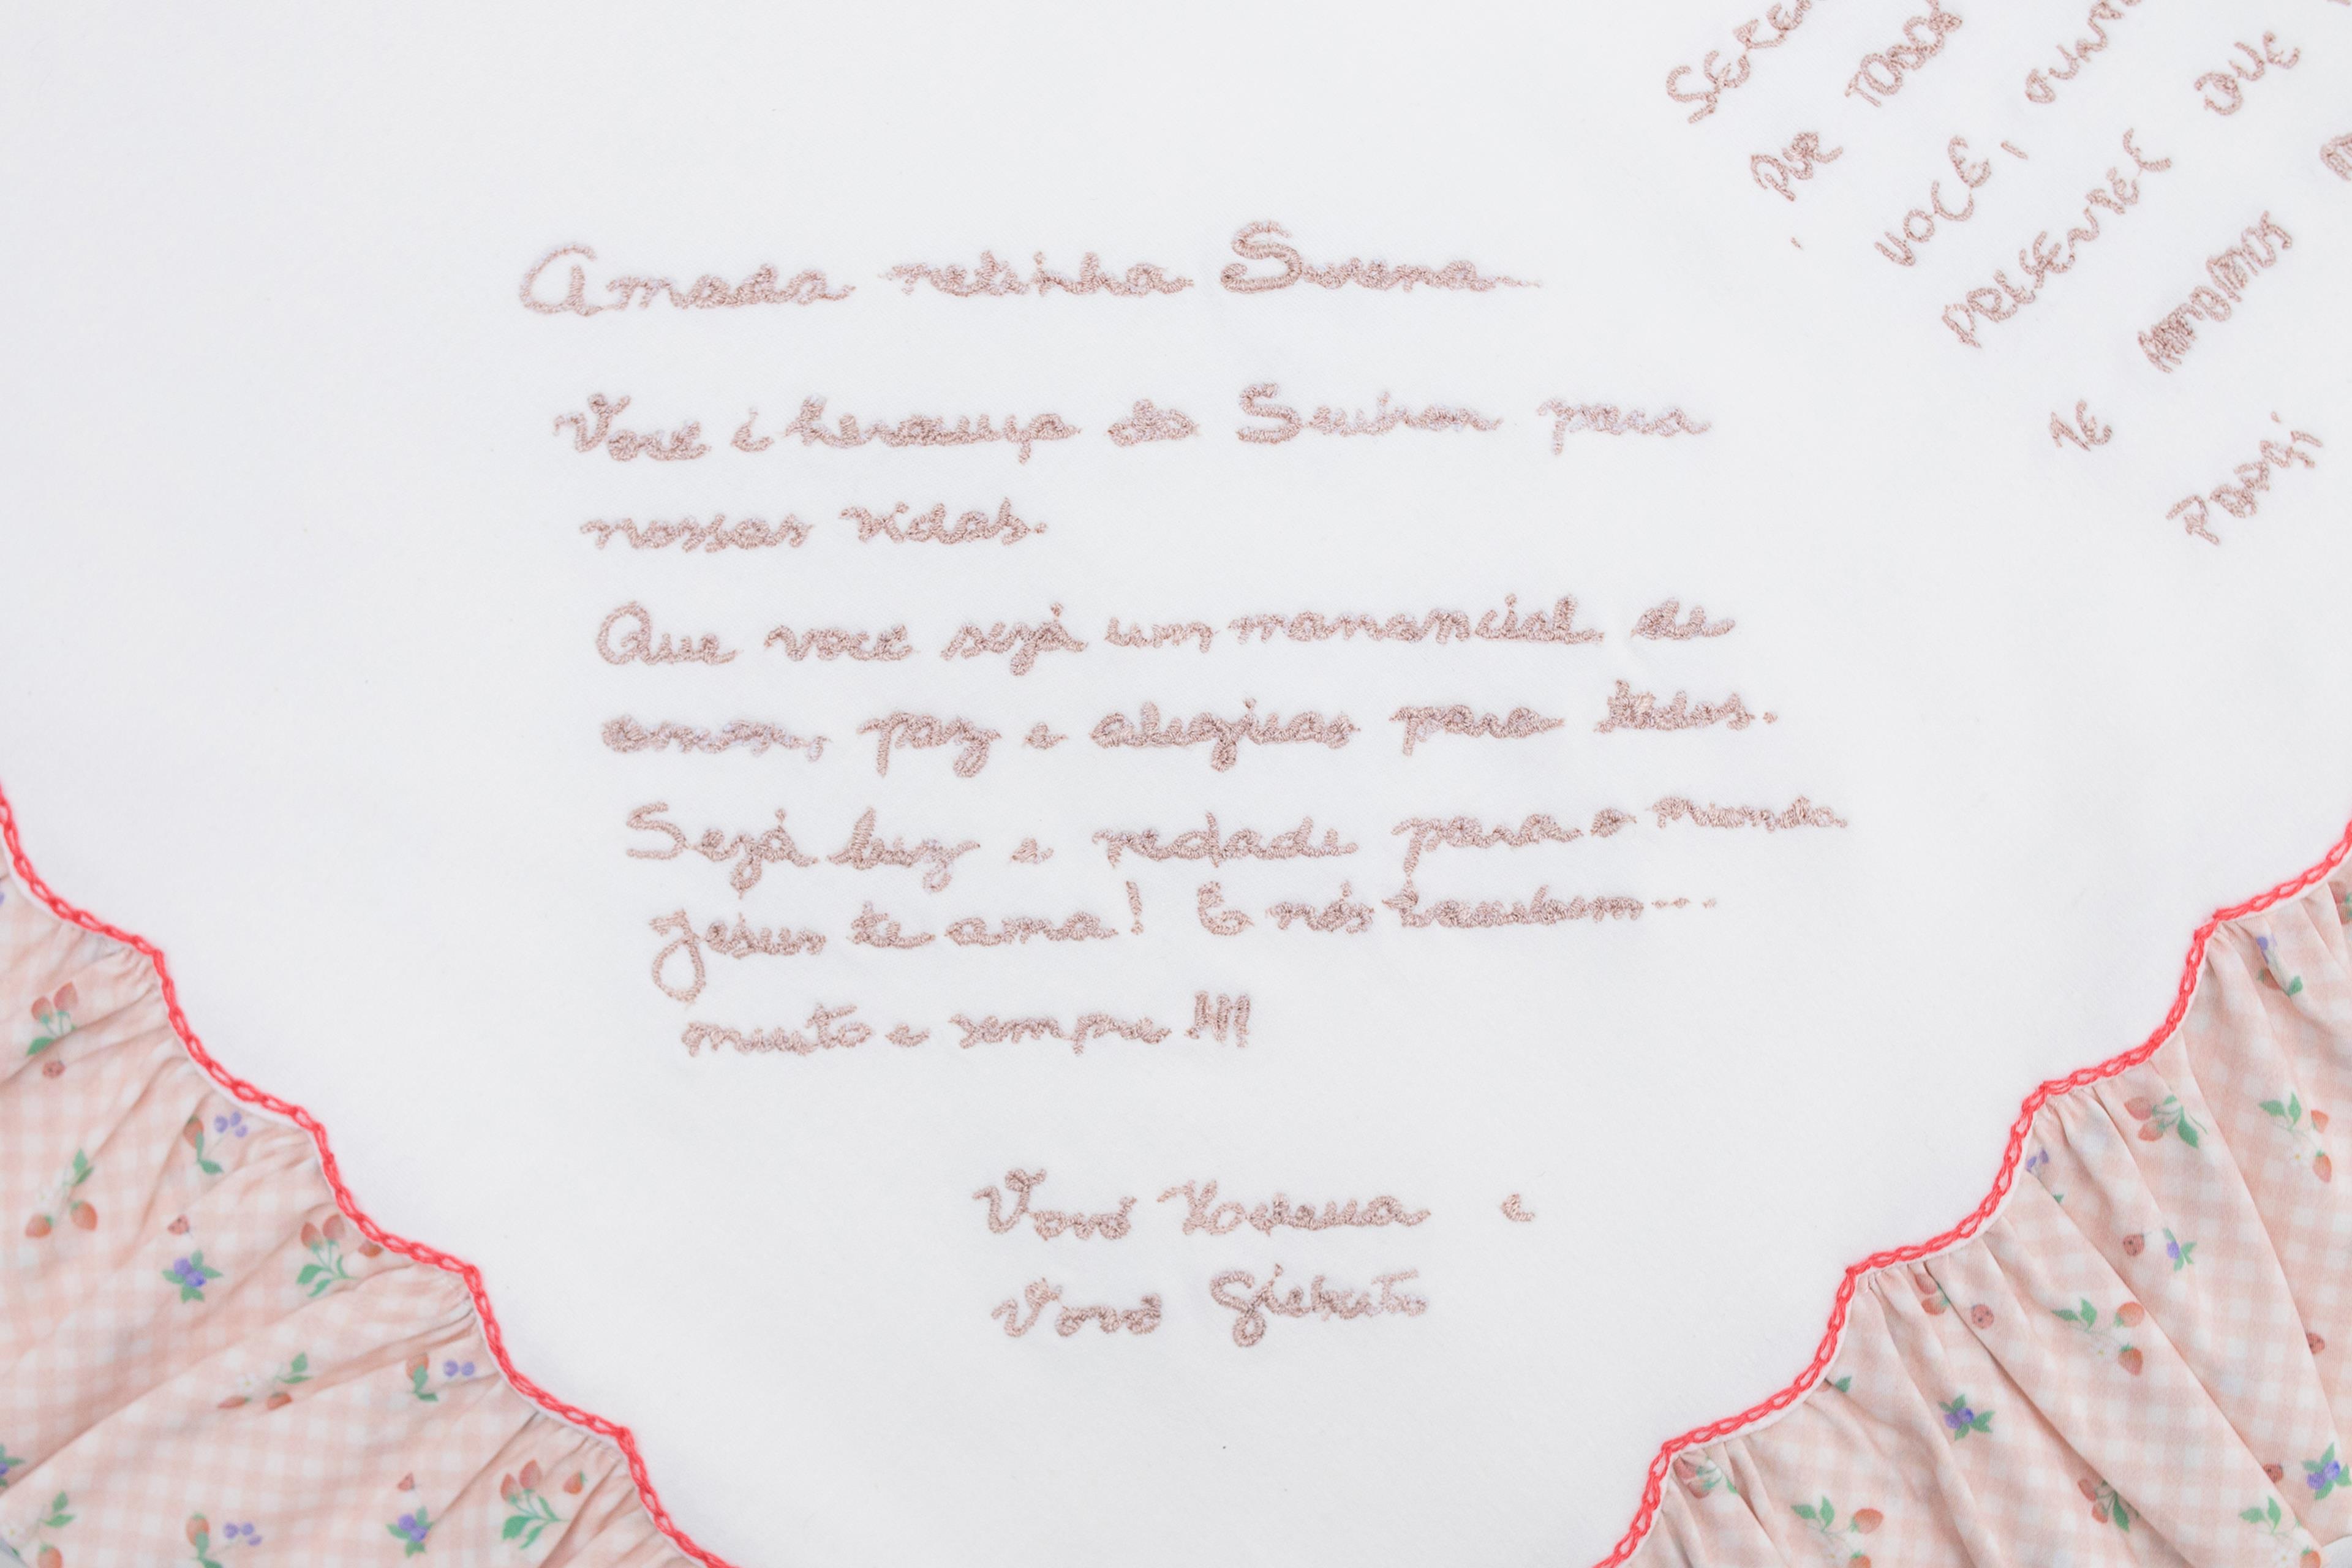 Amada netinha
Você é herança do Senhor para
nossas vidas.
Que você seja um manancial de
amor, paz e alegrias para todos.
Seja luz e verdade para o mundo.
Jesus te ama! E nós também...
muito e sempre!!!
Vovó e
Vovô Gilberto
POR TODOS
VOCÊ,
QUE
TE AMAMOS